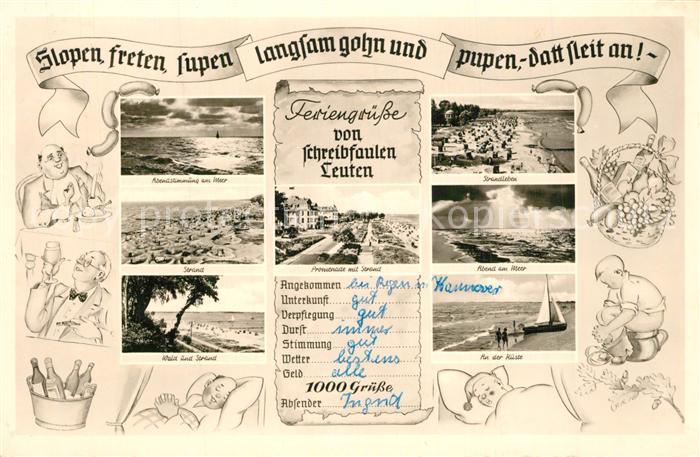 Slopen, freten, supen langsam gohn und pupen,- datt sleit an!-
Feriengrüße
von
schreibfaulen
Leuten
Abendstimmung am Meer
Strandleben
Strand
Promenade mit Strand
Abend am Meer
Wald und Strand
An der Küste
Angekommen bei Regen in Hannover
Unterkunft gut
Verpflegung gut
Durst immer
Stimmung gut
Wetter bestens
Geld alle
1000 Grüße
Absender Ingrid